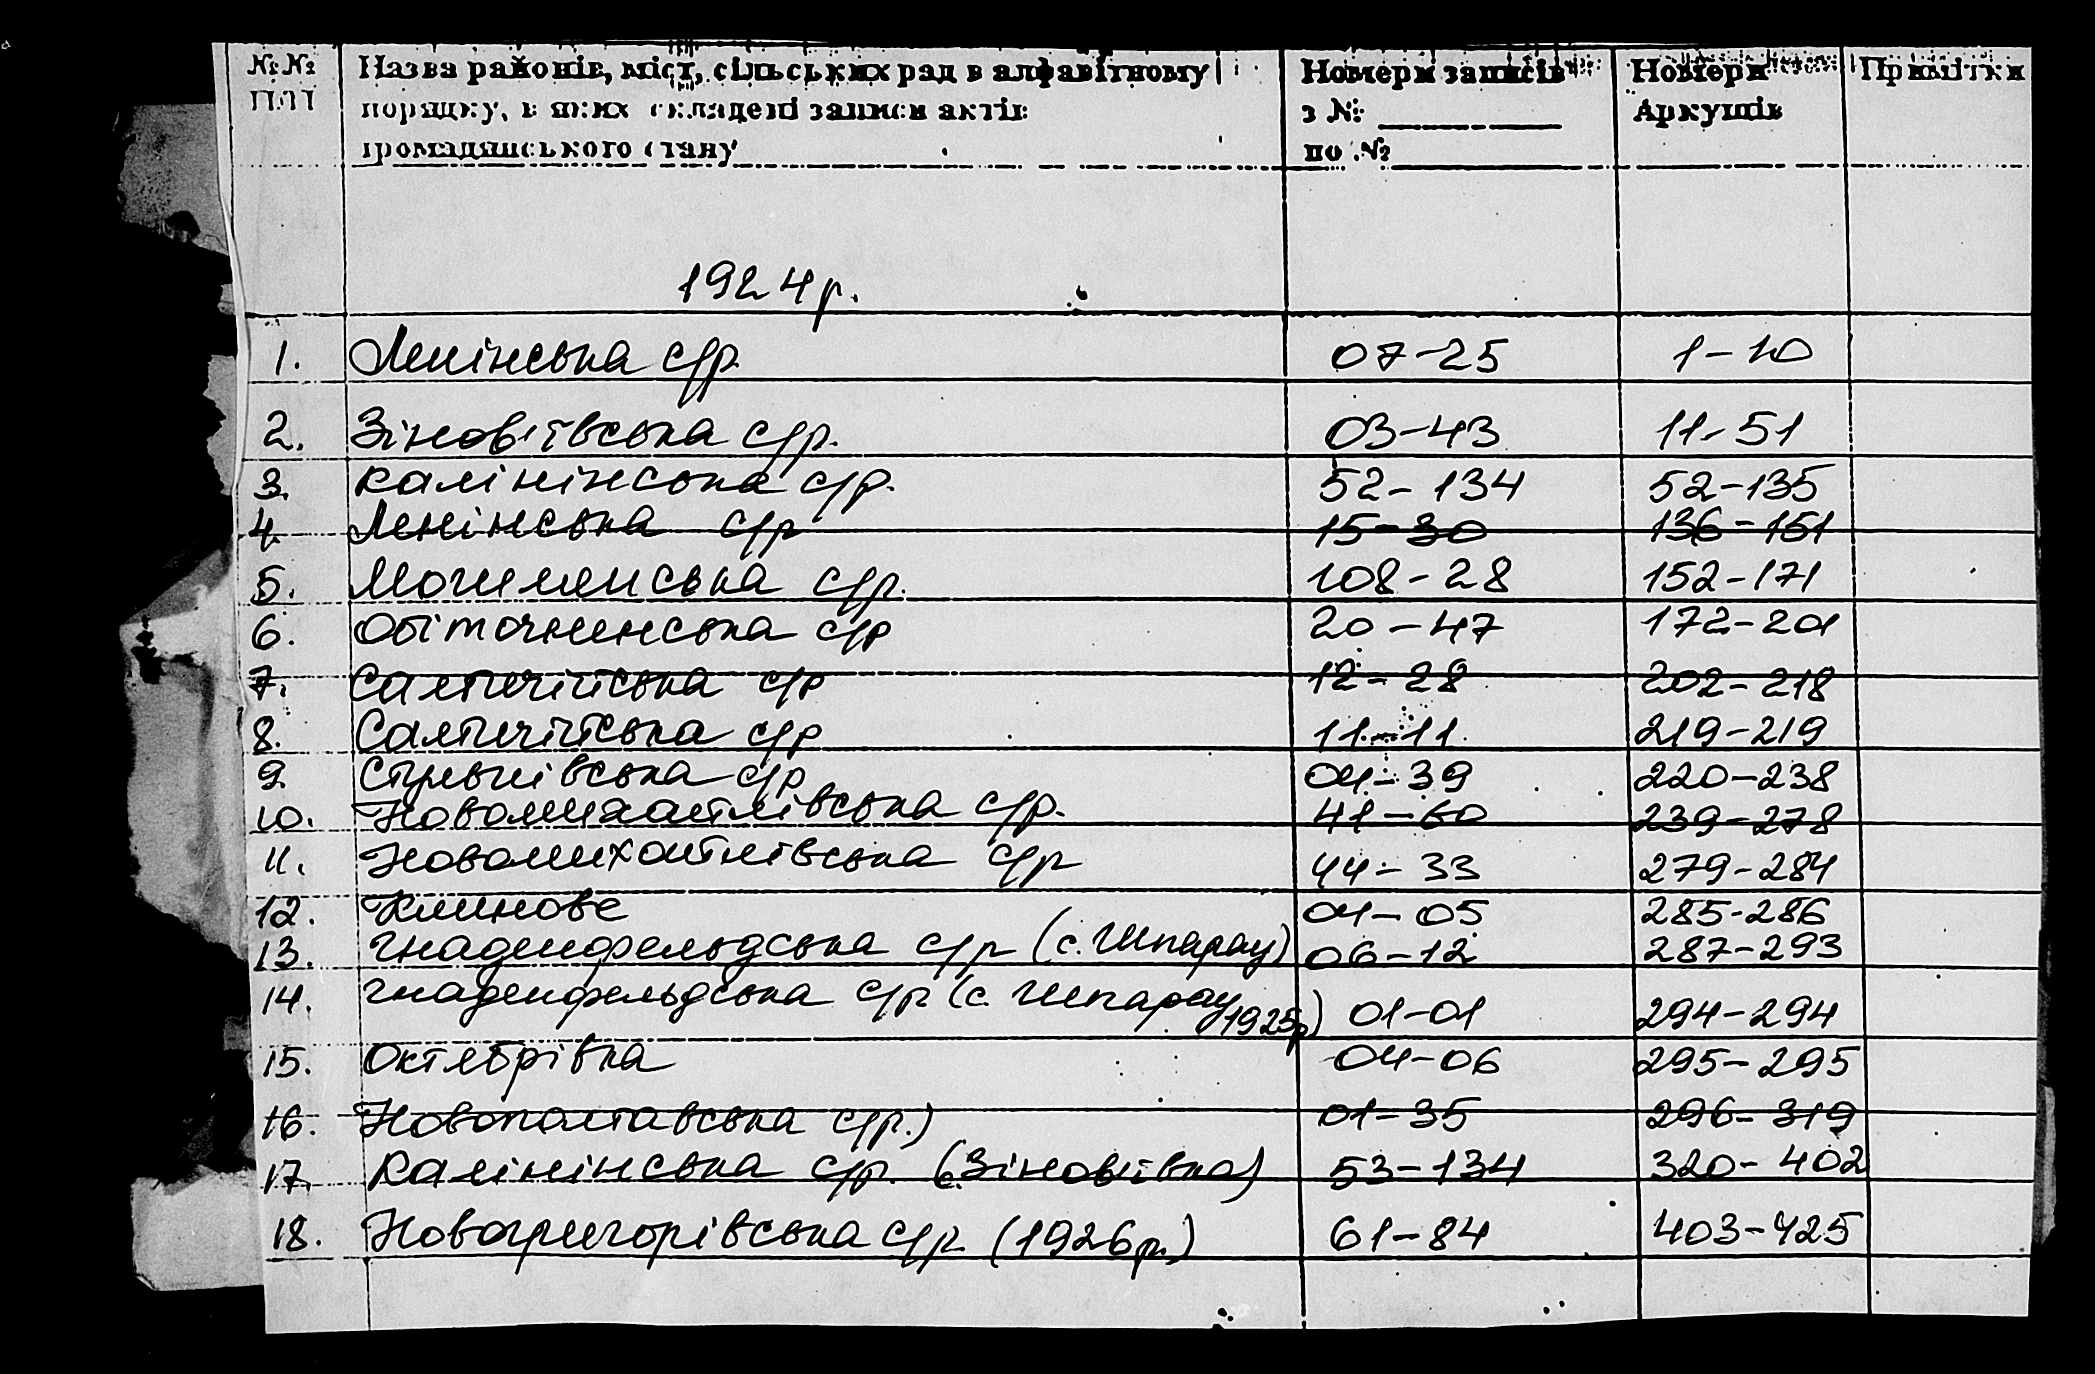 №№ Назва районів, міст, сільських рад в алфавітному Номери записів Номери Примітки
П/П порядку, в яких складені записи актів з № Аркушів
громадянського стану по №
1924р.
1. Ленінська с/р. 07-25 1-10
2. Зінов'ївська с/р. 03-43 11-51
3. Калінінська с/р. 52-134 52-135
4. Ленінська с/р 15-30 136-151
5. с/р. 108-28 152-171
6. Обіточненська с/р 20-47 172-201
7. Салтичійська с/р 12-28 202-218
8. Салтичійська с/р 11-11 219-219
9. Стульнівська с/р 04-39 220-238
10. Новомихайлівська с/р. 41-60 239-278
11. Новомихайлівська с/р 44-33 279-284
12. Клинове 04-05 285-286
13. Гнаденфельдська с/р (с. Шпарау) 06-12 287-293
14. Гнаденфельдська с/р (с. Шпарау 1925р) 01-01 294-294
15. Октябрівка 04-06 295-295
16. Новополтавська с/р.) 01-35 296-319
17. Калінінська с/р. (с. Зіновіївка) 53-134 320-402
18. Новогригорівська с/р (1926р.) 61-84 403-425